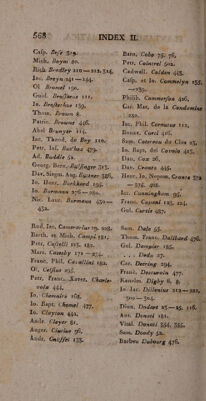 568 INDEX II.
Casp. Bose 519.
Mich. Boym 80.
Rich. Bradley 210 — 212. 514.
Jac. Breyn 141 — 144.
Ol Bromel 190.
Guid. Brusseus 111.
Io.
Thom. Brown 8.
Patric. Browne 446.
Abel Brunyer 114.
Iac. Theod. de Bry 110.
Petr. Ios. Buchoz 479.
Ad. Buddle 61.
Georg. Bern. Bulfinger 315.
Dav. Sigm. Aug. Buttner 526.
Io. Henr. Burckhard 196.
Io. Burmann 276 — 280.
Nic. Laur. Burmann 450 —
452.
Rud. Iac. Camerarius 19. 208.
Barth. et Mich. Campi 181.
Petr. Castelli 113. 182.
Marc. Catesby 271 — 274.
Franc. Phil. Cavallini 182.
Ol. Celsius 235.
Petr. Franc. Xaver. Charle-
voix 444.
Io. Chemnitz 168.
Io. Bapt. Chomel 437.
Io. Clayton 441.
Andr. Cleyer 81.
Auger. Clutius 96.
Andr.
Barn. Cobo 75. 76.
Petr. Coïnrel 502.
Cadwall. Colden 445.
Casp. et Io. Commelyn 155
— 159.
Philib. Commerson 426.
Car. Mar. de la Condamine
Iac. Phil. Cornutus 112.
Bonav. Corti 416.
Sam. Cottereau du Clos 23.
Io. Bapt. del Cornio 415.
Dan. Cox 26.
Dan. Cramer 445.
Henr. Io. Nepom. Crantz 372
— 374. 488.
Iac. Cunningham. 95.
Franc. Cupani 123. 124.
Gul. Curtis 487.
Sam. Dale 65.
Thom. Franc. Dalibard 476.
Gul. Dampier 185.
. . . Dada 27.
Car. Deering 294.
Franc. Descurain 477.
Kenelm. Digby 6. 8.
Io Iac. Dillenius 212 — 222.
500 — 504.
Dion. Dodart 23 — 25. 116.
Ant. Donati 181.
Vital. Donati 354. 355.
Sam. Doody 52.
Barbeu Dubourg 476.